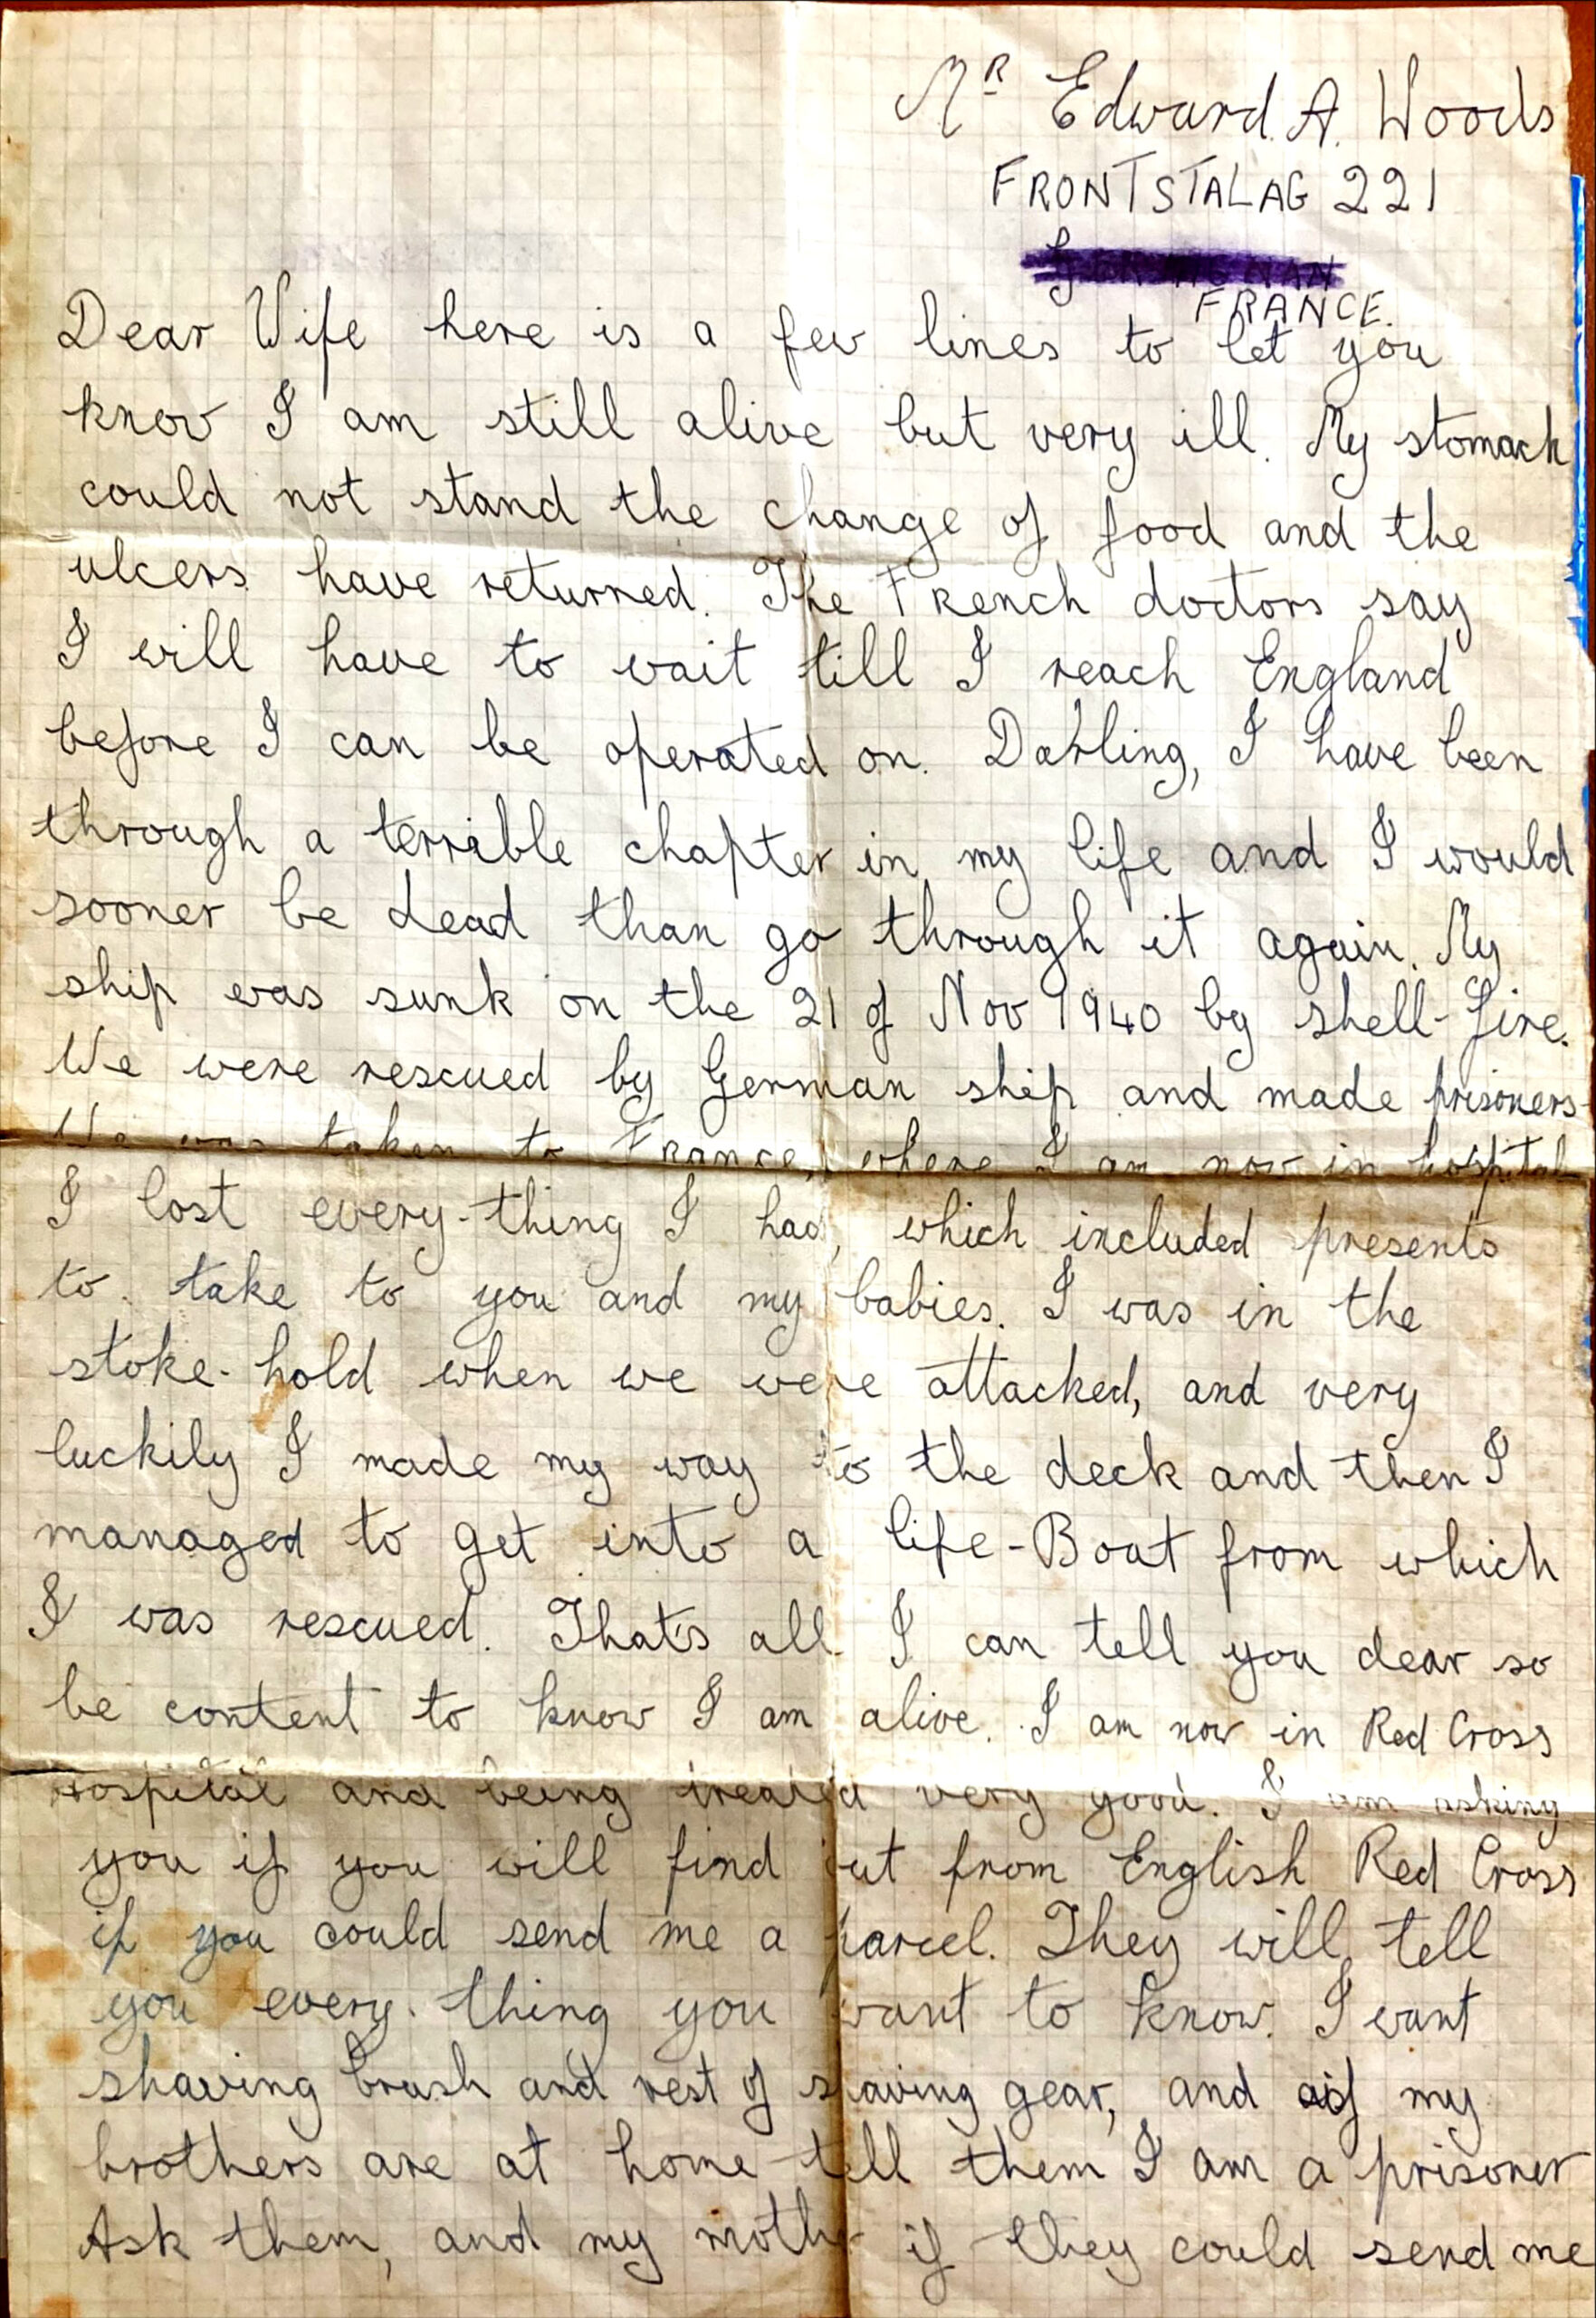 Mr Edward. A. Woods
FRONTSTALAG 221
FRANCE.
Dear Wife here is a few lines to let you
know I am still alive but very ill. My stomach
could not stand the change of food and the
ulcers have returned. The French doctors say
I will have to wait till I reach England
before I can be operated on. Darling, I have been
through a terrible chapter in my life and I would
sooner be dead than go through it again. My
ship was sunk on the 21 of Nov 1940 by shell-fire.
We were rescued by German ship and made prisoners-
We was taken to France, where I am now in hospital
I lost every-thing I had, which included presents
to take to you and my babies. I was in the
stoke-hold when we were attacked, and very
luckily I made my way to the deck and then I
managed to get into a life-Boat from which
I was rescued. That's all I can tell you dear so
be content to know I am alive. I am now in Red Cross
hospital and being treated very good. I am asking
you if you will find out from English Red Cross
if you could send me a parcel. They will tell
you every-thing you want to know. I want
shaving brush and rest of shaving gear, and if my
brothers are at home tell them I am a prisoner
Ask them, and my mother if they could send me